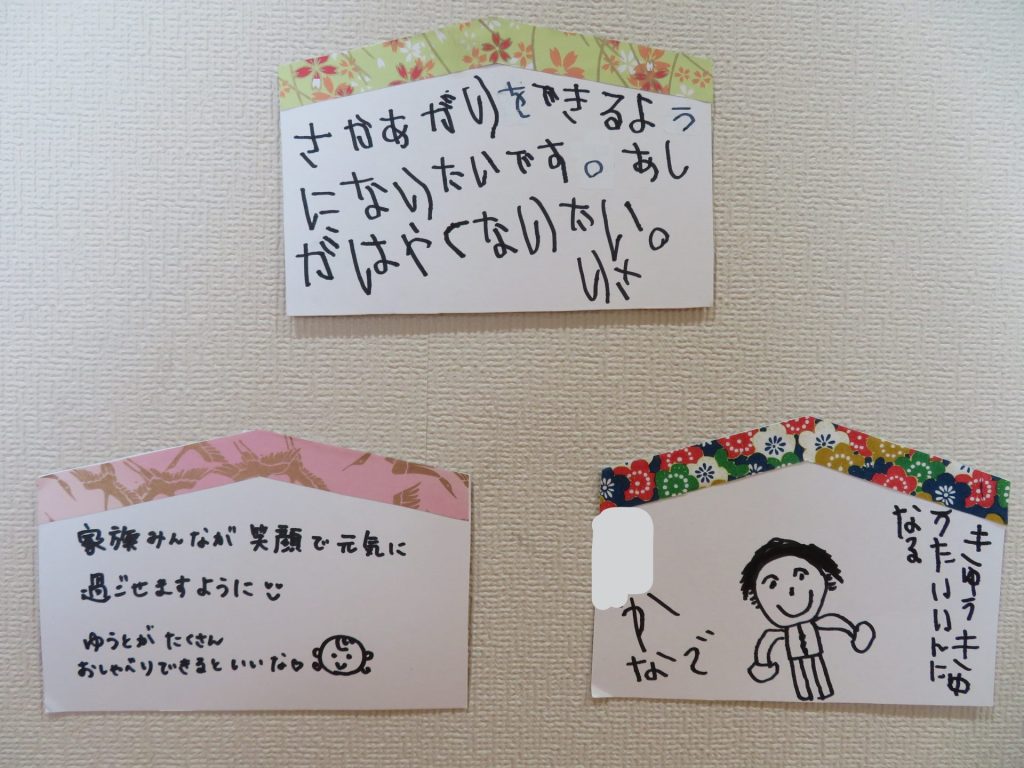 さかあがりをできるよう
になりたいです。あし
がはやくなりたい。
りさ
家族みんなが笑顔で元気に
過ごせますように
ゆうとが たくさん
おしゃべりできるといいな
きゅうきゅ
うたいいんに
なる
なで